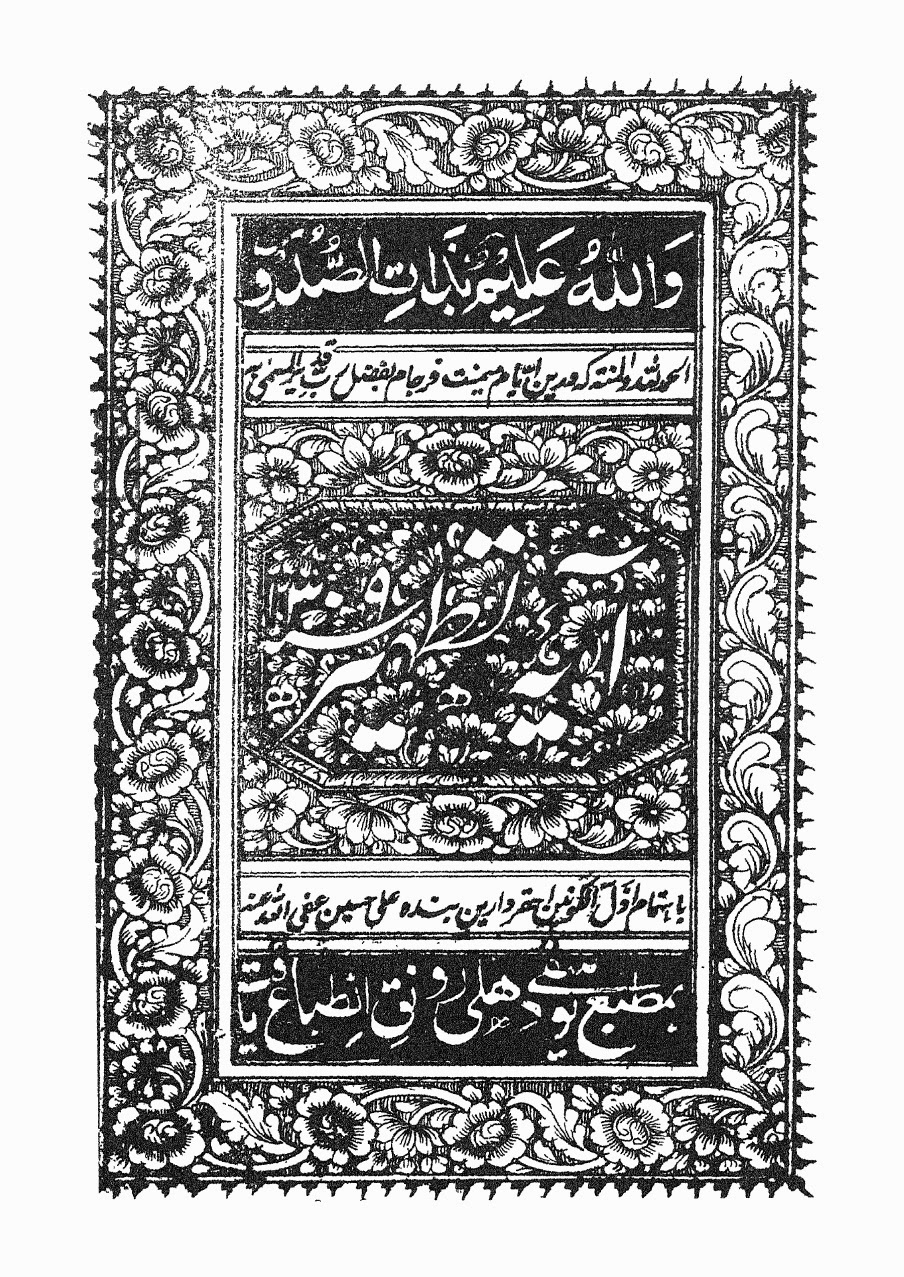 وَاللهُ عَلِيمٌ بِذَاتِ الصُّدُورِ
الحمد لله والمنته که درین ایام میمنت فرجام بفضل رب قدیر المسمی به
آیه تطهیر
۱۳۰۹
باهتمام اول الکونین احقر دارین بنده علی حسین عفی الله عنه
بمطبع یوسفی دهلی رونق انطباع یافت